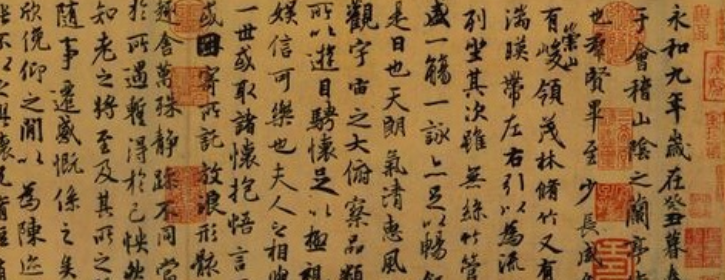 永和九年歲在癸丑暮
于會稽山陰之蘭亭
也羣賢畢至少長咸
有崇山峻領茂林脩竹又有
湍暎帶左右引以為流
列坐其次雖無絲竹管
盛一觴一詠亦足以暢
是日也天朗氣清惠風
觀宇宙之大俯察品類
所以遊目騁懷足以極視
娛信可樂也夫人之相與
一世或取諸懷抱悟言
或因寄所託放浪形骸
趣舍萬殊靜躁不同當
於所遇蹔得於己怏然
知老之將至及其所之
隨事遷感慨係之矣
欣俛仰之閒以為陳迹
不以之興懷